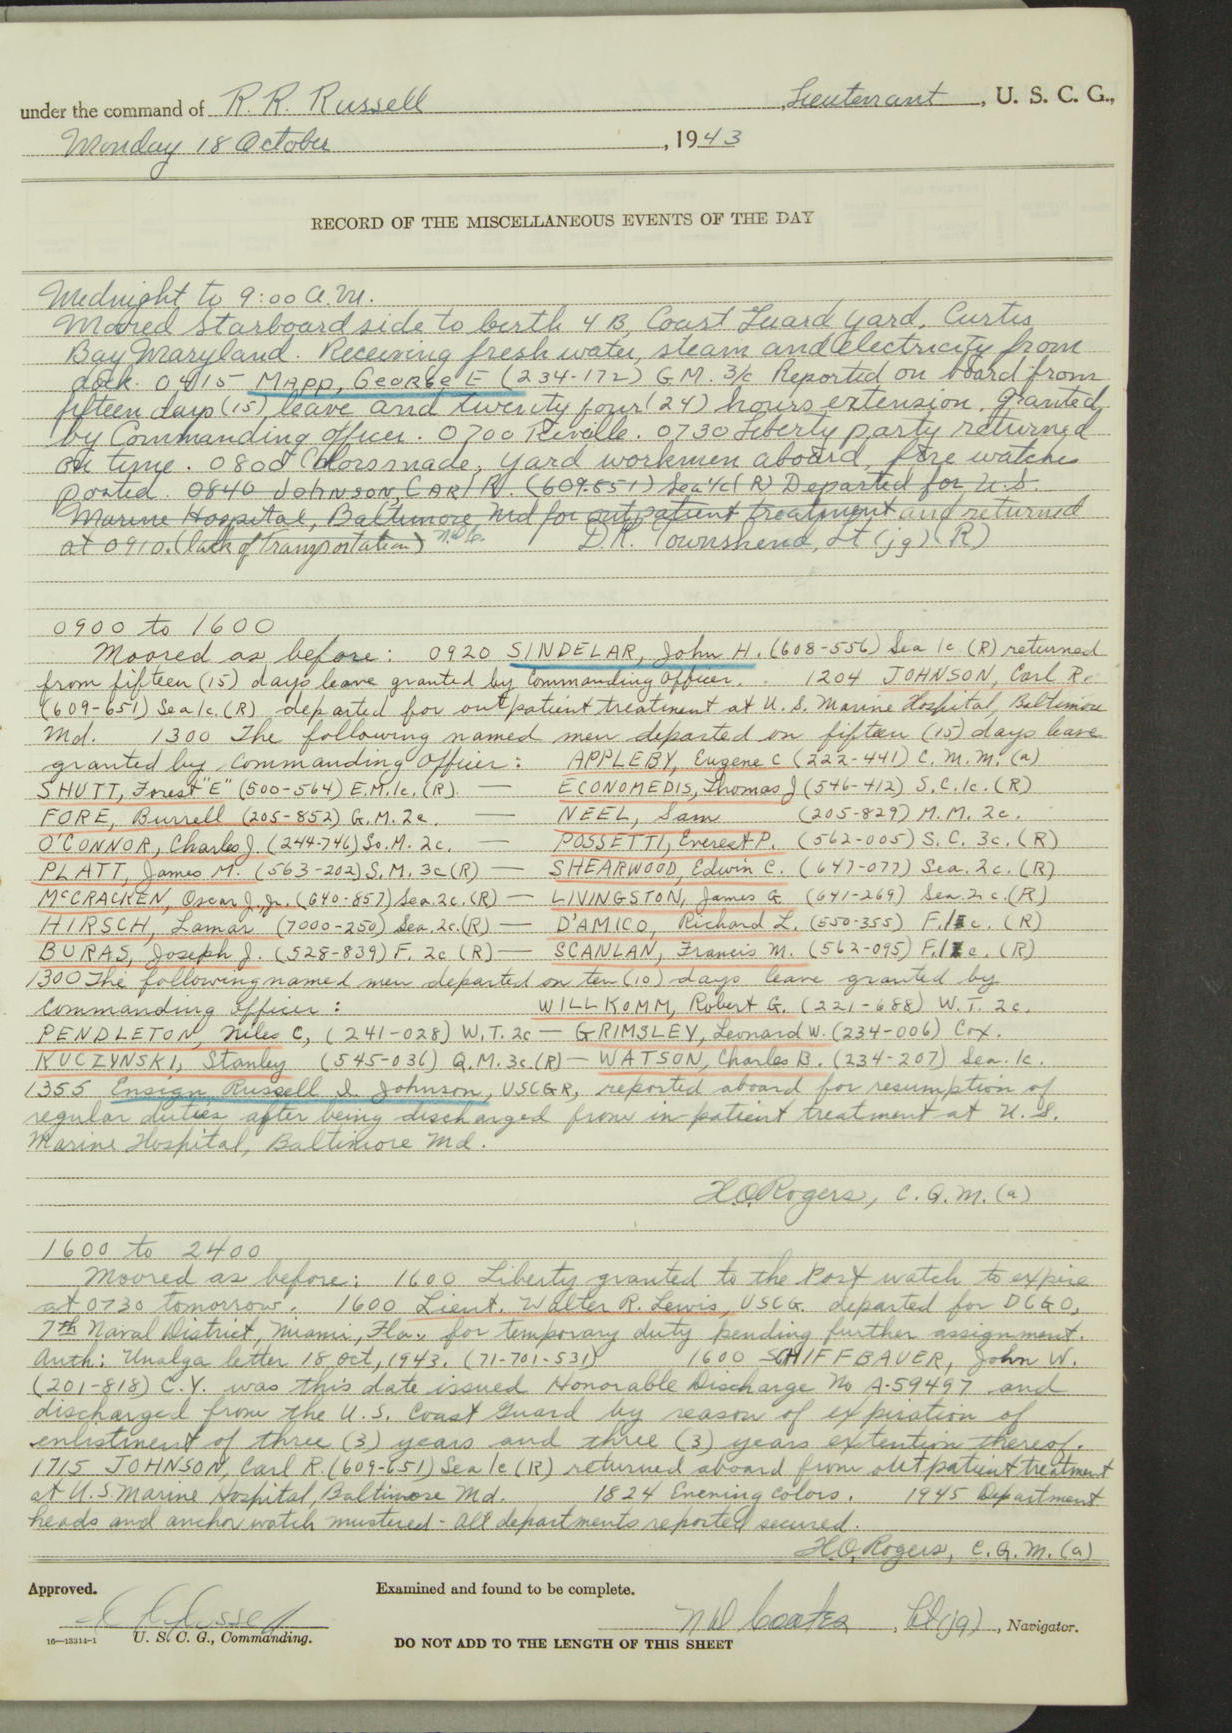 under the command of R. R. Russell, Lieutenant, U. S. C. G.,
Monday 18 October, 1943
RECORD OF THE MISCELLANEOUS EVENTS OF THE DAY
Midnight to 9:00 A.M.
Moored Starboard side to berth 4 B, Coast Guard Yard, Curtis
Bay Maryland. Receiving fresh water, steam and electricity from
dock. 0415 MAPP, GEORGE E (234-172) G.M. 3/c Reported on board from
fifteen days (15) leave and twenty four (24) hours extension, granted
by Commanding Officer. 0700 Reveille. 0730 Liberty party returned
on time. 0800 Colors made, yard workmen aboard, fire watches
posted. 0840 JOHNSON, CARL R. (609-651) Sea 1/c (R) Departed for U.S.
Marine Hospital, Baltimore, Md for outpatient treatment and returned
at 0910. (lack of Transportation) D.R. Townshend, Lt (jg) (R)
0900 to 1600
Moored as before: 0920 SINDELAR, John H. (608-556) Sea 1c (R) returned
from fifteen (15) days leave granted by Commanding Officer. 1204 JOHNSON, Carl R.
(609-651) Sea 1c. (R) departed for outpatient treatment at U. S. Marine Hospital, Baltimore
Md. 1300 The following named men departed on fifteen (15) days leave
granted by Commanding Officer: APPLEBY, Eugene C (222-441) C. M. M. (a)
SHUTT, Forest "E" (500-564) E.M. 1c. (R) — ECONOMEDIS, Thomas J (546-412) S.C. 1c. (R)
FORE, Burrell (205-852) G.M. 2c. — NEEL, Sam (205-829) M.M. 2c.
O'CONNOR, Charles J. (244-746) So. M. 2c. — POSSETTI, Everest P. (562-005) S. C. 3c. (R)
PLATT, James M. (563-202) S.M. 3c (R) — SHEARWOOD, Edwin C. (647-077) Sea. 2c. (R)
McCRACKEN, Oscar J. Jr. (640-857) Sea. 2c. (R) — LIVINGSTON, James G. (641-269) Sea. 2c. (R)
HIRSCH, Lamar (7000-250) Sea. 2c. (R) — D'AMICO, Richard L. (550-355) F. 1c. (R)
BURAS, Joseph J. (528-839) F. 2c (R) — SCANLAN, Francis M. (562-095) F. 1c. (R)
1300 The following named men departed on ten (10) days leave granted by
Commanding Officer: WILLKOMM, Robert G. (221-688) W. T. 2c.
PENDLETON, Niles C, (241-028) W. T. 2c — GRIMSLEY, Leonard W. (234-006) Cox.
KUCZYNSKI, Stanley (545-036) Q.M. 3c. (R) — WATSON, Charles B. (234-207) Sea. 1c.
1355 Ensign Russell I. Johnson, USCGR, reported aboard for resumption of
regular duties after being discharged from in-patient treatment at U. S.
Marine Hospital, Baltimore Md.
H.O. Rogers, C. Q. M. (a)
1600 to 2400
Moored as before: 1600 Liberty granted to the Port watch to expire
at 0730 tomorrow. 1600 Lieut. Walter R. Lewis, USCG. departed for DCGO,
7th Naval District, Miami, Fla., for temporary duty pending further assignment.
Auth: Unalga letter 18 Oct, 1943. (71-701-531) 1600 SCHIFFBAUER, John W.
(201-818) C.Y. was this date issued Honorable Discharge No A-59497 and
discharged from the U. S. Coast Guard by reason of expiration of
enlistment of three (3) years and three (3) years extention thereof.
1715 JOHNSON, Carl R. (609-651) Sea 1c (R) returned aboard from outpatient treatment
at U. S Marine Hospital, Baltimore Md. 1824 Evening colors. 1945 Department
heads and anchor watch mustered - All departments reported secured.
H.O. Rogers, C. Q. M. (a)
Approved. Examined and found to be complete.
N W Coates, Lt (jg), Navigator.
16—13314-1 U. S. C. G., Commanding.
DO NOT ADD TO THE LENGTH OF THIS SHEET